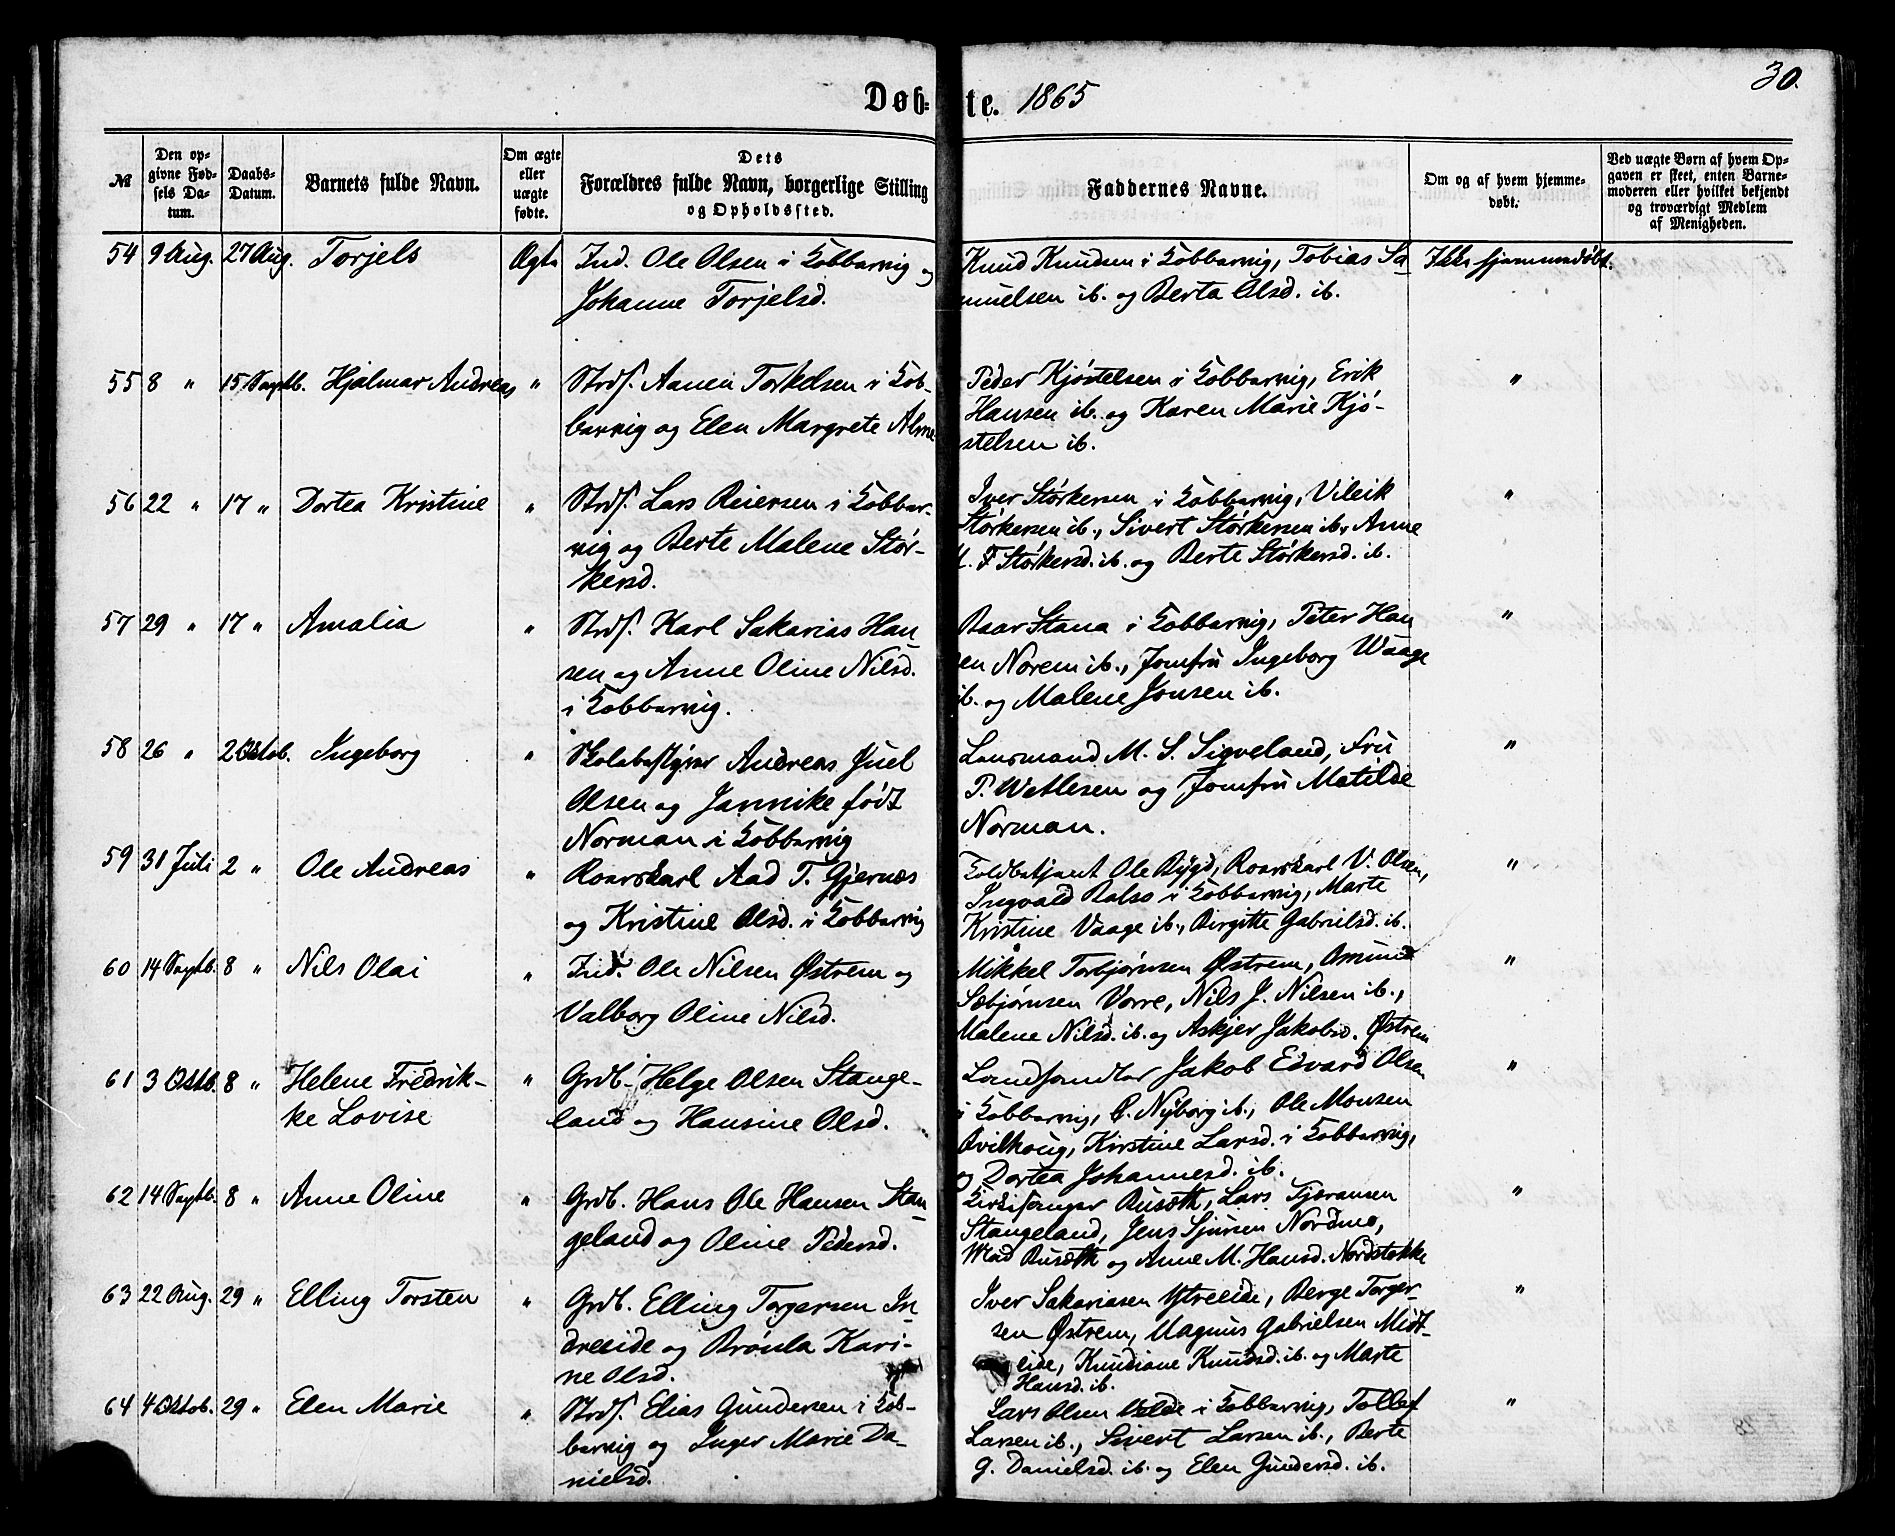 30.
Døbte. 1865
№
Den opgivne Fødsels Datum.
Daabs-Datum.
Barnets fulde Navn.
Om ægte eller uægte fødte.
Dets Forældres fulde Navn, borgerlige Stilling og Opholdssted.
Faddernes Navne.
Om og af hvem hjemmedøbt.
Ved uægte Børn af hvem Opgaven er skeet, enten Barnemoderen eller hvilket bekjendt og troværdigt Medlem af Menigheden.
54 9 Aug. 27 Aug. Torjels Ægte Ind. Ole Olsen i Kobbervig og
Johanne Torjelsd.
Knud Knudsen i Kobbervig, Tobias Sa-
muelsen ib. og Berta Olsd. ib.
Ikke hjemmedøbt.
55 8 " 15 Septb. Hjalmar Andreas " Strds. Aanen Torkelsen i Kob-
bervig og Elen Margrete Alme
Peder Kjóstelsen i Kobbervig, Erik
Hansen ib. og Karen Marie Kjó-
stelsen ib.
"
56 22 " 17 " Dortea Kristine " Strds. Lars Reiersen i Kobber-
vig og Berte Malene Stór-
kersd.
Iver Stórkersen i Kobbervig, Vileik
Stórkersen ib., Sivert Stórkersen ib., Anne
M. F Stórkersd. ib. og Berte Stórkersd. ib.
"
57 29 " 17 " Amalia " Strds. Karl Sakarias Han-
sen og Anne Oline Nilsd.
i Kobbervig.
Baar Stana i Kobbervig, Peter Han
sen Norem ib., Jomfru Ingeborg Waage
ib. og Malene Jonsen ib.
"
58 26 " 2 Oktob. Ingeborg " Skolebestyrer Andreas Juel
Olsen og Jannike født
Norman i Kobbervig
Lensmand M. S. Sigveland, Fru
P. Wetlesen og Jomfru Matilde
Norman.
"
59 31 Juli 2 " Ole Andreas " Roerskarl Aad T. Gjernæs
og Kristine Olsd. i Kobbervig
Toldbetjent Ole Bygd, Roerskarl V. Olsen,
Ingvald i Kobbervig, Marte
Kristine Vaage ib., Birgitte Gabrielsd. ib.
"
60 14 Septb. 8 " Nils Olai " Ind. Ole Nilsen Østrem og
Valborg Oline Nilsd.
Mikkel Torbjørnsen Østrem, Amund
Sæbjørnsen Vorre, Nils J. Nilsen ib.,
Malene Nilsd. ib. og Askjer Jakobsd. Østrem
"
61 3 Oktb. 8 " Helene Fredrik-
ke Lovise " Grdb. Helge Olsen Stange-
land og Hansine Olsd.
Landhandler Jakob Edvard Olsen
i Kobbervig, O. Nyborg ib., Ole Monsen
Kvilhoug, Kirstine Larsd. i Kobbervig,
og Dortea Johannesd. ib.
"
62 14 Septb. 8 " Anne Oline " Grdb. Hans Ole Hansen Stan-
geland og Oline Pedersd.
Kirkesanger Busæth, Lars Tjæransen
Stangeland, Jens Sjursen Nordmo,
Mad Busæth og Anne M. Hansd. Nordstokke
"
63 22 Aug. 29 " Elling Torsten " Grdb. Elling Torgersen In-
dreeide og Brónla Kari-
ne Olsd.
Iver Sakariasen Ytreeide, Berge Torger-
sen Østrem, Magnus Gabrielsen Midt-
eide, Knudiane Knudsd. ib. og Marte
Hansd. ib.
"
64 4 Oktob. 29 " Elen Marie " Strds. Elias Gundersen i Kob-
bervig og Inger Marie Da-
nielsd.
Lars Olsen Velde i Kobbervig, Tollef
Larsen ib., Sivert Larsen ib., Berte
G. Danielsd. ib. og Elen Gundersd. ib.
"